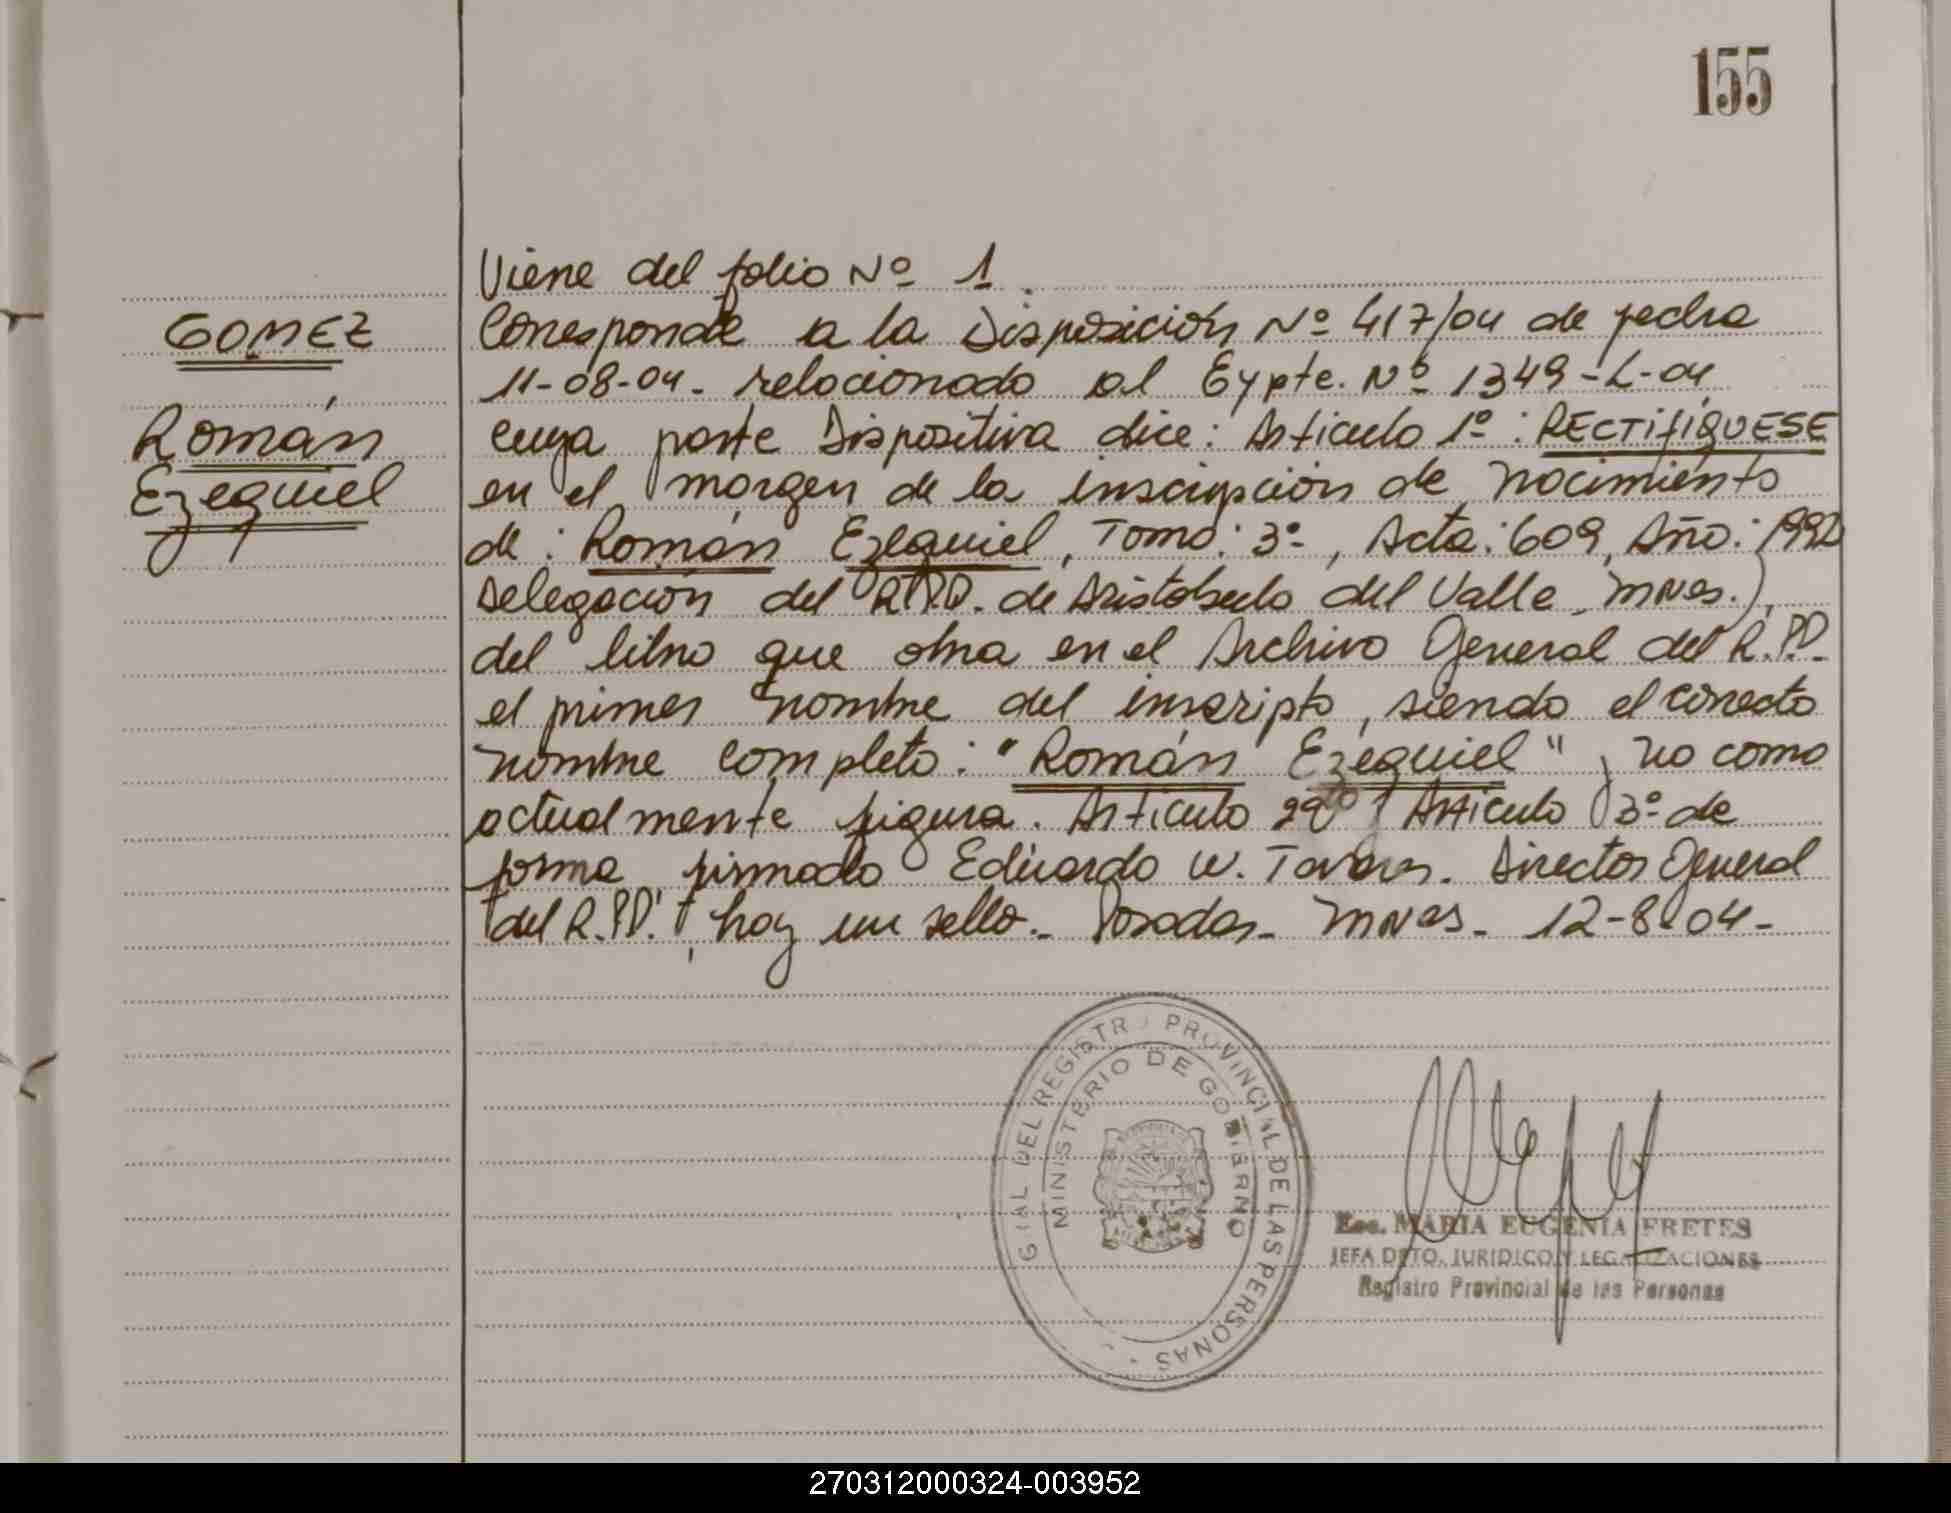 155
Viene del folio Nº 1.
GOMEZ
Corresponde a la Disposición Nº 417/04 de fecha
11-08-04- relacionado al Expte. Nº 1349-L-04
Román
cuya parte Dispositiva dice: Artículo 1º: RECTIFIQUESE
Ezequiel
en el margen de la inscripción de nacimiento
de: Román Ezequiel, Tomo: 3º, Acta: 609, Año: 1992
Delegación del R.P.P. de Aristóbulo del Valle, Mnes.),
del libro que obra en el Archivo General del R.P.P.
el primer nombre del inscripto, siendo el correcto
nombre completo: "Román Ezequiel" y no como
actualmente figura. Artículo 2º y Artículo 3º de
forma firmado Eduardo W. Tavares. Director General
del R.P.P. hay un sello.- Posadas- Mnes- 12-8-04-
GIAL DEL REGISTR PROVINCIAL DE LAS PERSONAS
MINISTERIO DE GOBIERNO
Esc. MARIA EUGENIA FRETES
JEFA DPTO. JURIDICO Y LEGALIZACIONES
Registro Provincial de las Personas
270312000324-003952